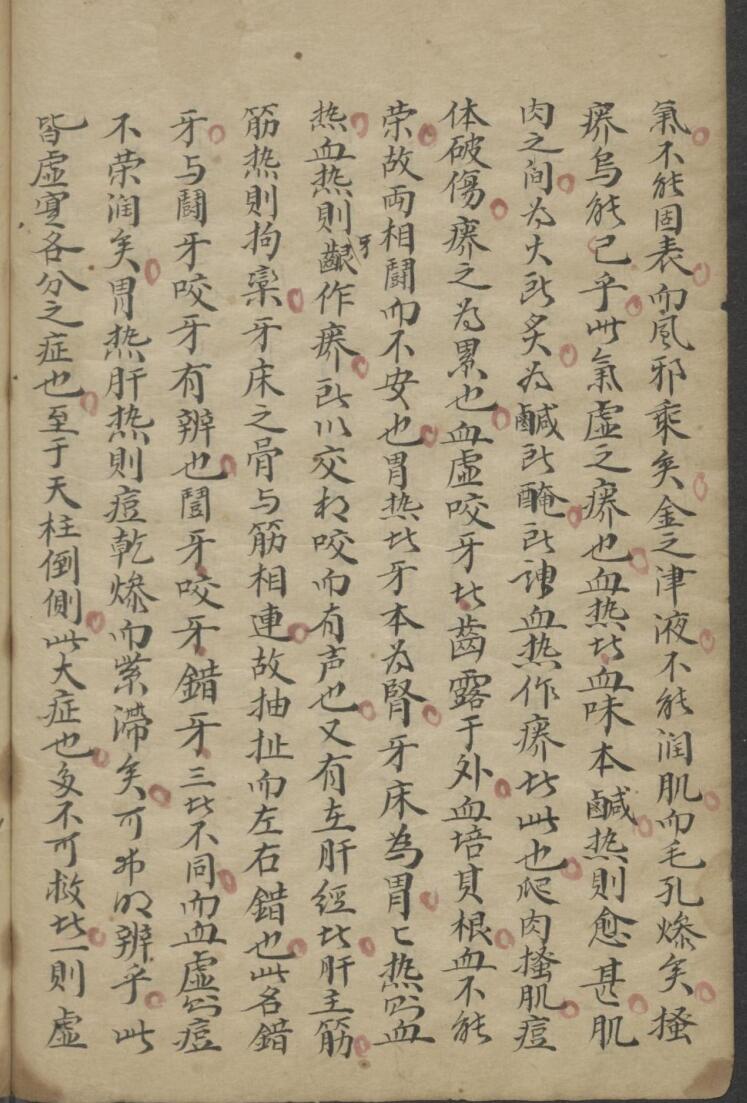 氣不能固表而風邪乘矣金之津液不能润肌而毛孔燥矣搔
痒烏能已乎此氣虛之痒也血热者血味本鹹热則愈甚肌
肉之间为火所炙为鹹所醃所謂血热作痒者此也爬肉搔肌痘
体破傷痒之为累也血虛咬牙者齒露于外血培其根血不能
荣故両相鬪而不安也胃热者牙本为腎牙床為胃〻热則血
热血热則齦牙作痒所以交相咬而有声也又有在肝經者肝主筋
筋热則拘挛牙床之骨与筋相連故抽扯而左右錯也此名錯
牙与鬪牙咬牙有辨也鬪牙咬牙錯牙三者不同而血虛則痘
不荣润矣胃热肝热則痘乾燥而紫滯矣可弗明辨乎此
皆虛實各分之症也至于天柱倒側此大症也多不可救者一則虛